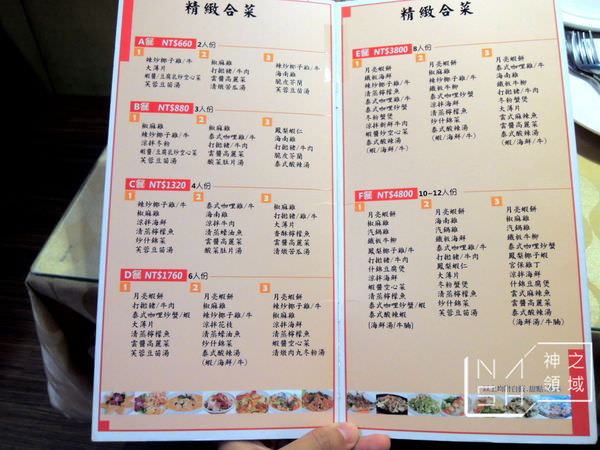 精緻合菜
A餐 NT$660 2人份
1
辣炒椰子雞/牛
大薄片
蝦醬/豆腐乳炒空心菜
芙蓉豆苗湯
2
椒麻雞
打拋豬/牛肉
雲醬高麗菜
清燉苦瓜湯
3
辣炒椰子雞/牛
海南雞
脆皮芥蘭
芙蓉豆苗湯
B餐 NT$880 3人份
1
椒麻雞
辣炒椰子雞/牛
涼拌冬粉
蝦醬/豆腐乳炒空心菜
芙蓉豆苗湯
2
椒麻雞
泰式咖哩雞/牛
打拋豬/牛肉
雲醬高麗菜
酸菜肚片湯
3
鳳梨蝦仁
海南雞
打拋豬/牛肉
脆皮芥蘭
泰式酸辣湯
C餐 NT$1320 4人份
1
辣炒椰子雞/牛
椒麻雞
涼拌海鮮
清蒸檸檬魚
炒什錦菜
芙蓉豆苗湯
2
泰式咖哩雞/牛
海南雞
涼拌牛肉
清蒸蠔油魚
雲醬高麗菜
酸菜肚片湯
3
椒麻雞
打拋豬/雞肉
大薄片
香酥檸檬魚
雲醬高麗菜
清燉苦瓜湯
D餐 NT$1760 6人份
1
月亮蝦餅
打拋豬/牛肉
泰式咖哩炒蟹/蝦
大薄片
清蒸檸檬魚
雲醬高麗菜
芙蓉豆苗湯
2
月亮蝦餅
椒麻雞
辣炒椰子雞/牛
涼拌花枝
清蒸蠔油魚
炒什錦菜
泰式酸辣湯
(蝦/海鮮/牛)
3
月亮蝦餅
椒麻雞
辣炒椰子雞/牛
涼拌海鮮
清蒸檸檬魚
雲醬高麗菜
清燉肉丸冬粉湯
精緻合菜
E餐 NT$3800 8人份
1
月亮蝦餅
鐵板海鮮
辣炒椰子雞/牛
清蒸檸檬魚
泰式咖哩雞/牛
泰式咖哩炒蟹
冬粉蟹煲
涼拌新鮮牛肉
蝦醬炒空心菜
泰式酸辣湯
(蝦/海鮮/牛)
2
月亮蝦餅
椒麻雞
鐵板牛柳
打拋豬/牛肉
泰式咖哩炒蝦
涼拌海鮮
清蒸檸檬魚
炒什錦菜
泰式酸辣湯
(蝦/海鮮/牛)
3
月亮蝦餅
泰式咖哩雞/牛
海南雞
鐵板牛柳
打拋豬/牛肉
冬粉蟹煲
大薄片
雲式麻辣魚
雲醬高麗菜
泰式酸辣湯
(蝦/海鮮/牛)
F餐 NT$4800 10~12人份
1
月亮蝦餅
椒麻雞
汽鍋雞
鐵板牛柳
打拋豬/牛肉
什錦豆腐煲
涼拌海鮮
蝦醬空心菜
清蒸檸檬魚
泰式酸辣蝦
(海鮮湯/牛)
2
月亮蝦餅
海南雞
汽鍋雞
鐵板海鮮
泰式咖哩雞/牛
鳳梨蝦仁
大薄片
冬粉蟹煲
雲式麻辣魚
炒什錦菜
芙蓉豆苗湯
3
月亮蝦餅
椒麻雞
汽鍋雞
鐵板牛柳
泰式咖哩炒蟹
鳳梨椰子蝦
宮保雞丁
涼拌海鮮
什錦豆腐煲
清蒸檸檬魚
雲式高麗菜
泰式酸辣湯
(海鮮湯/牛腩)
神之
領域